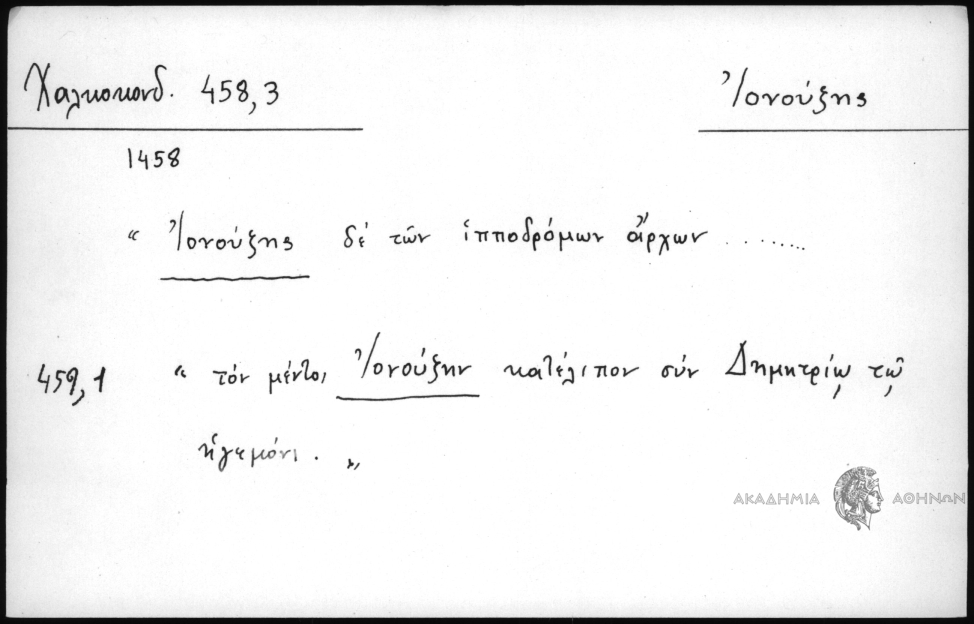 Χαλκοκονδ. 458,3 Ἰονούξης
1458
“ Ἰονούξης δέ τῶν ἱπποδρόμων ἄρχων ........
459,1 “ τόν μέντοι Ἰονούξην κατέλιπον σύν Δημητρίῳ τῷ
ἡγεμόνι. „
ΑΚΑΔΗΜΙΑ ΑΘΗΝΩΝ